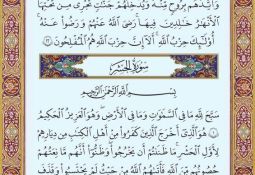 وَأَيَّدَهُم بِرُوحٍ مِّنْهُ وَيُدْخِلُهُمْ جَنَّٰتٍ تَجْرِى مِن تَحْتِهَا
ٱلْأَنْهَٰرُ خَٰلِدِينَ فِيهَا رَضِىَ ٱللَّهُ عَنْهُمْ وَرَضُوا۟ عَنْهُ
أُو۟لَٰٓئِكَ حِزْبُ ٱللَّهِ أَلَآ إِنَّ حِزْبَ ٱللَّهِ هُمُ ٱلْمُفْلِحُونَ ٢٢
سُورَةُ الحَشْرِ
بِسْمِ ٱللَّهِ ٱلرَّحْمَٰنِ ٱلرَّحِيمِ
سَبَّحَ لِلَّهِ مَا فِى ٱلسَّمَٰوَٰتِ وَمَا فِى ٱلْأَرْضِ وَهُوَ ٱلْعَزِيزُ ٱلْحَكِيمُ
١ هُوَ ٱلَّذِىٓ أَخْرَجَ ٱلَّذِينَ كَفَرُوا۟ مِنْ أَهْلِ ٱلْكِتَٰبِ مِن دِيَٰرِهِمْ
لِأَوَّلِ ٱلْحَشْرِ مَا ظَنَنتُمْ أَن يَخْرُجُوا۟ وَظَنُّوٓا۟ أَنَّهُم مَّانِعَتُهُمْ
حُصُونُهُم مِّنَ ٱللَّهِ فَأَتَىٰهُمُ ٱللَّهُ مِنْ حَيْثُ لَمْ يَحْتَسِبُوا۟ وَقَذَفَ